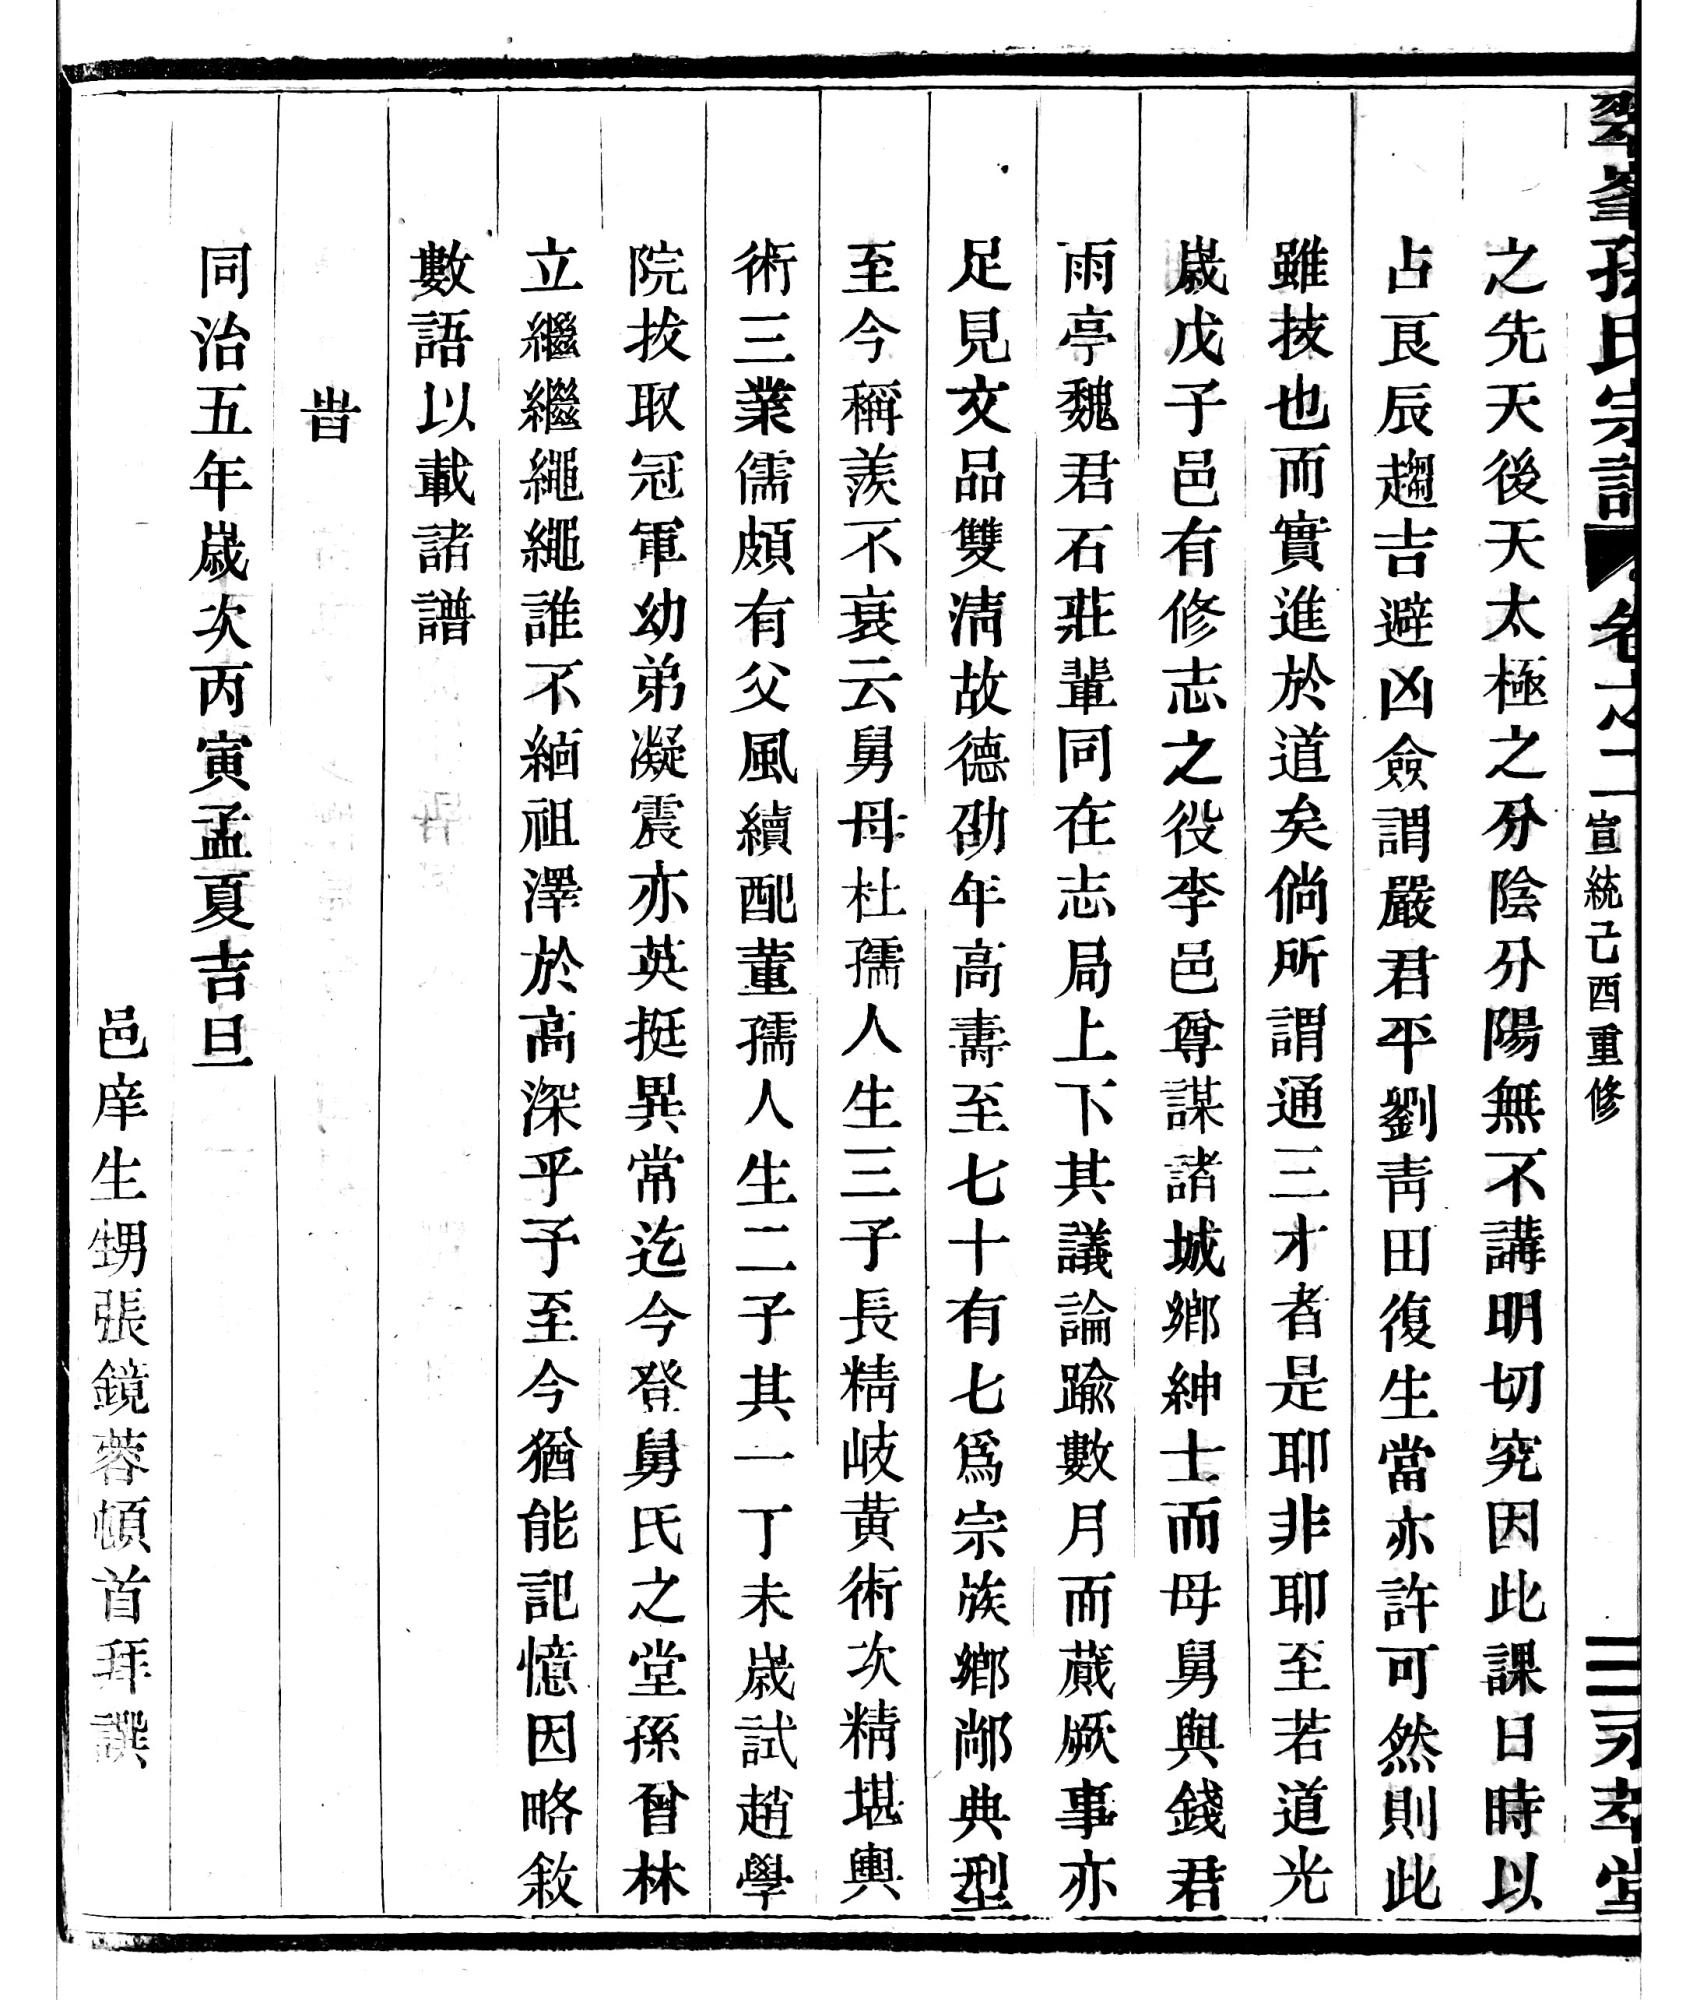 翠峯孫氏宗譜 卷之二 宣統己酉重修 三 永萃堂
之先天後天太極之分陰分陽無不講明切究因此課日時以
占良辰趨吉避凶僉謂嚴君平劉靑田復生當亦許可然則此
雖技也而實進於道矣倘所謂通三才者是耶非耶至若道光
歲戊子邑有修志之役李邑尊謀諸城鄉紳士而母舅與錢君
雨亭魏君石莊輩同在志局上下其議論踰數月而蕆厥事亦
足見文品雙淸故德劭年高壽至七十有七爲宗族鄉鄰典型
至今稱羨不衰云舅母杜孺人生三子長精岐黃術次精堪輿
術三業儒頗有父風續配董孺人生二子其一丁未歲試趙學
院拔取冠軍幼弟凝震亦英挺異常迄今登舅氏之堂孫曾林
立繼繼繩繩誰不緬祖澤於高深乎予至今猶能記憶因略敘
數語以載諸譜
旹
同治五年歲次丙寅孟夏吉旦
邑庠生甥張鏡蓉頓首拜譔